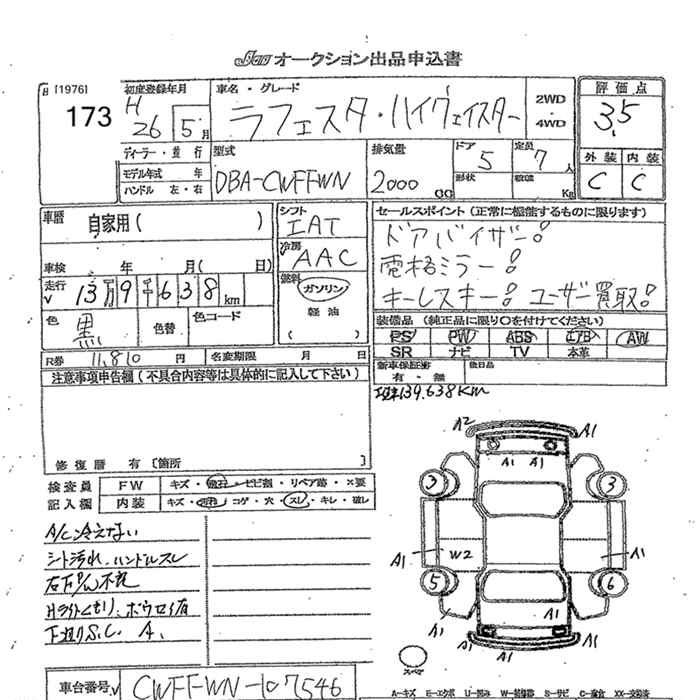 JAA オークション出品申込書
[1976]
173
初度登録年月
H 26 5月
車名・グレード
ラフェスタ・ハイウェイスター
2WD
4WD
評価点
3.5
ディーラー・並行
モデル年式 年
ハンドル 左・右
型式
DBA-CWFFWN
排気量
2000 CC
ドア 5
形状
定員 7人
積載 Kg
外装 内装
C C
車歴
自家用( )
シフト
IAT
冷房
AAC
燃料
ガソリン
軽油
( )
車検 年 月( 日)
走行
13万9千638km
色
黒
色替
色コード
R券 11,810円
名変期限 月 日
セールスポイント(正常に機能するものに限ります)
ドアバイザー!
電格ミラー!
キーレスキー! ユーザー買取!
装備品(純正品に限り○を付けてください)
PS PW ABS エアB AW
SR ナビ TV 本革
新車保証書
有・無
後日品
139,638Km
注意事項申告欄(不具合内容等は具体的に記入して下さい)
修復歴 有 〔箇所 〕
検査員
記入欄
FW キズ・飛石・ヒビ割・リペア跡・×要
内装 キズ・汚れ・コゲ・穴・スレ・キレ・破レ
A/C冷えない
シート汚れ、ハンドルスレ
右下P/W不良
Hライトくもり、ホウロイ有
下廻りS.C. A.
A2 A1
A1 A1
3 3
A1 W2 A1
5 6
A1 A1
A1 A1
スペア
車台番号 CWFFWN-107546
A-キズ E-エクボ U-凹み W-補修跡 S-サビ C-腐食 XX-交換済